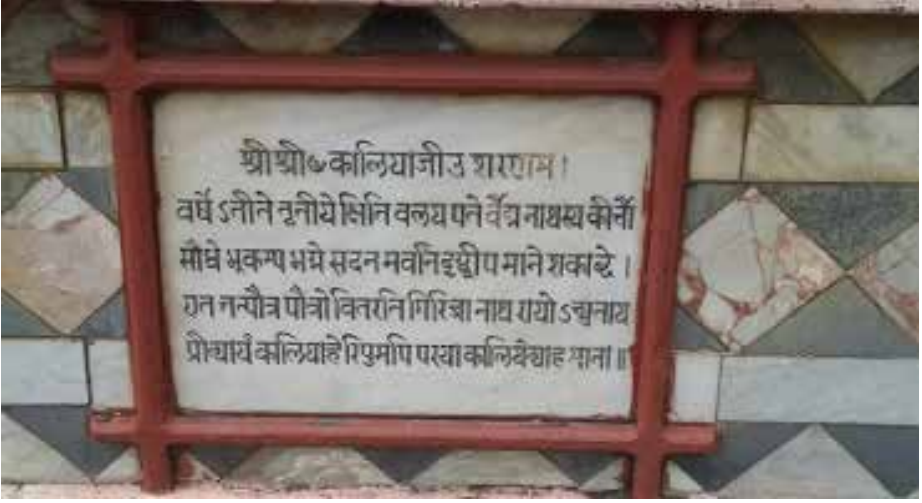 श्री श्री ৺ कालियाजीउ शरणम ।
वर्षे ऽतीते तृतीये क्षिति वलय पते र्वैद्य नाथस्य कीर्त्तौ
सौधे भूकम्प भग्ने सदन मवनि माने शकाब्दे ।
तत्पौत्र पौत्रो वितरति गिरिजा नाथ रायो ऽच्युताय
कालियाहे रिपुमपि परया